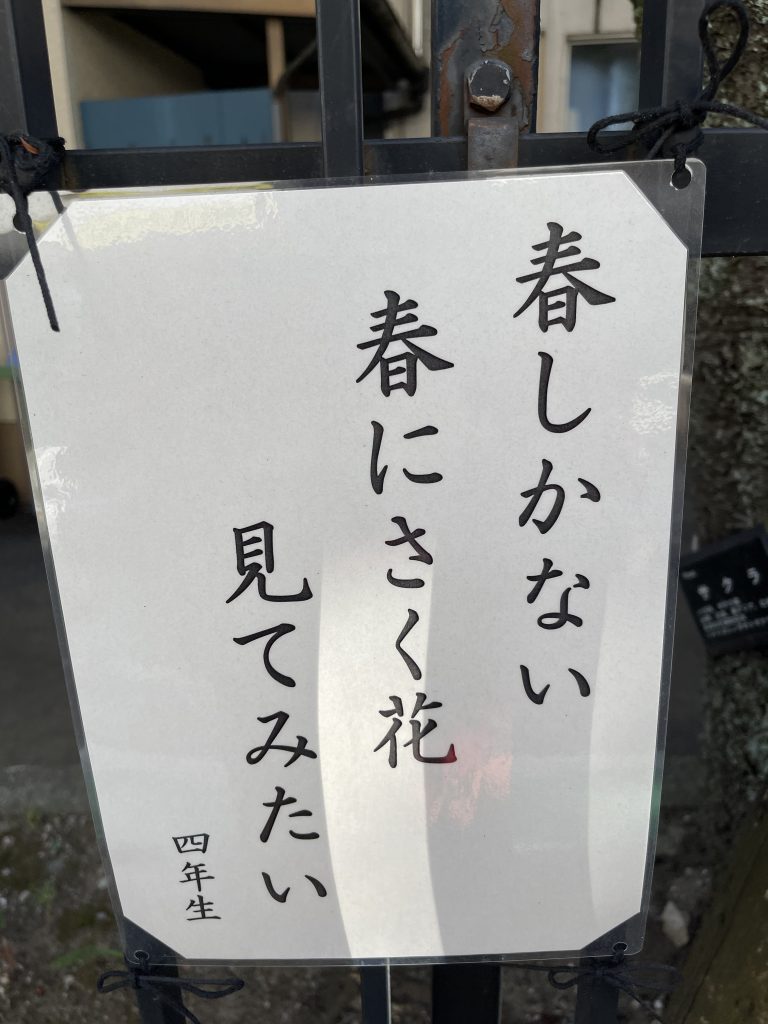 春しかない
春にさく花
見てみたい
四年生
サクラ